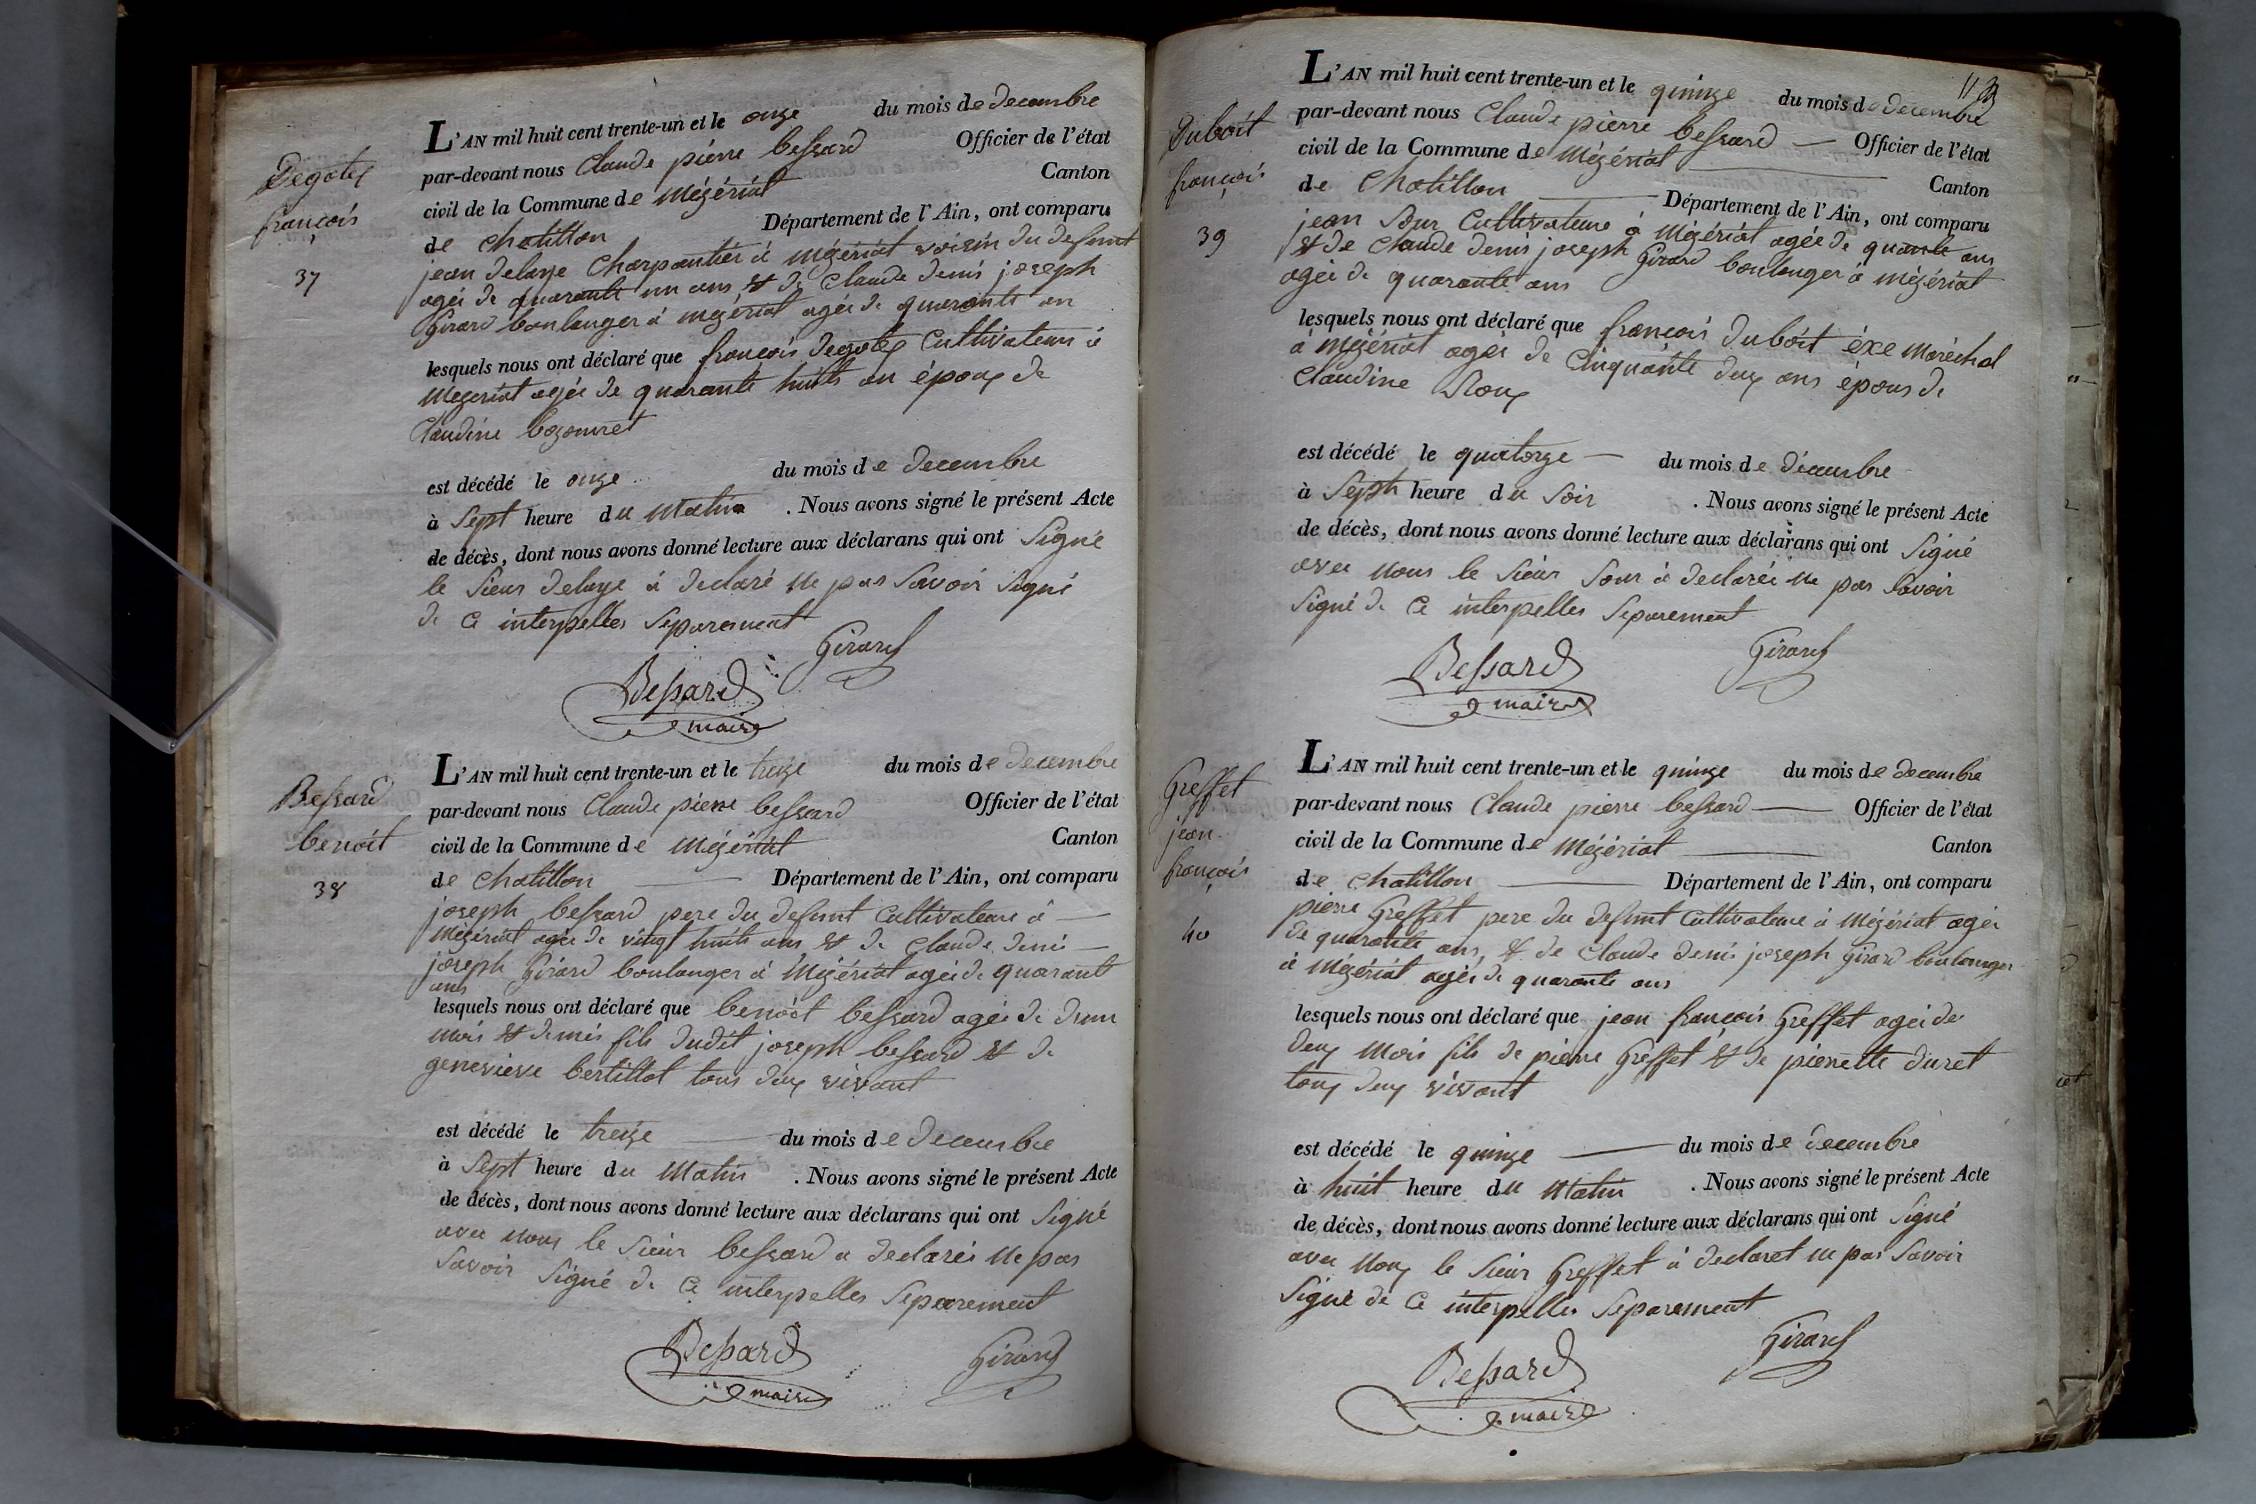 Degotex
françois
37
L'AN mil huit cent trente-un et le onze du mois de decembre
par-devant nous Claude pierre bessard Officier de l'état
civil de la Commune de Mézériat Canton
de Chatillon Département de l'Ain, ont comparu
jean delaye Charpantier à mézériat voisin du defunt
agée de quarante un ans, et de Claude denis joseph
Girard boulanger à mézériat agée de quarante an
lesquels nous ont déclaré que françois Degotex Cultivateur à
Mézériat agée de quarante huits an époux de
Claudine
est décédé le onze du mois de decembre
à Sept heure du Matin . Nous avons signé le présent Acte
de décès, dont nous avons donné lecture aux déclarans qui ont Signé
le Sieur delaye à declaré ne pas Savoir Signé
de Ce interpelles Separement
Girard
Bessard
maire
Bessard
benoit
38
L'AN mil huit cent trente-un et le treize du mois de decembre
par-devant nous Claude pierre bessard Officier de l'état
civil de la Commune de Mézériat Canton
de Chatillon Département de l'Ain, ont comparu
joseph bessard pere du defunt Cultivateur à
Mézériat agée de vingt huits ans, et de Claude deni
joseph Girard boulanger à Mézériat agée de quarant
ans
lesquels nous ont déclaré que benoit bessard agée de deun
mois et demis fils dudit joseph bessard et de
genevieve bertillot tous deux vivant
est décédé le treize du mois de decembre
à Sept heure du Matin . Nous avons signé le présent Acte
de décès, dont nous avons donné lecture aux déclarans qui ont Signé
avec nous le Sieur bessard a declarée ne pas
Savoir Signé de Ce interpelles Separement
Bessard Girard
maire
113
Duboit
françois
39
L'AN mil huit cent trente-un et le quinze du mois de decembre
par-devant nous Claude pierre bessard Officier de l'état
civil de la Commune de Mézériat Canton
de Chatillon Département de l'Ain, ont comparu
jean Cultivateur à Mézériat agée de quarante ans
et de Claude denis joseph Girard boulanger à mézériat
agée de quarante ans
lesquels nous ont déclaré que françois duboit éxe Maréchal
à Mézériat agée de Cinquante deux ans épous de
Claudine Roux
est décédé le quatorze du mois de décembre
à Septh heure du Soir . Nous avons signé le présent Acte
de décès, dont nous avons donné lecture aux déclarans qui ont Signé
avec nous le Sieur à declarée ne pas Savoir
Signé de Ce interpelles Separement
Bessard Girard
maire
Greffet
jean
françois
40
L'AN mil huit cent trente-un et le quinze du mois de decembre
par-devant nous Claude pierre bessard Officier de l'état
civil de la Commune de Mézériat Canton
de Chatillon Département de l'Ain, ont comparu
pierre Greffet pere du defunt Cultivateur à Mézériat agée
de quarante ans, et de Claude denis joseph Girard boulanger
à Mézériat agée de quarante ans
lesquels nous ont déclaré que jean françois Greffet agée de
deux Mois fils de pierre Greffet et de pierrette duret
toux deux vivant
est décédé le quinze du mois de decembre
à huit heure du Matin . Nous avons signé le présent Acte
de décès, dont nous avons donné lecture aux déclarans qui ont Signé
avec Noux le Sieur Greffet à declaret ne pas Savoir
Signé de Ce interpelles Separement
Bessard Girard
maire